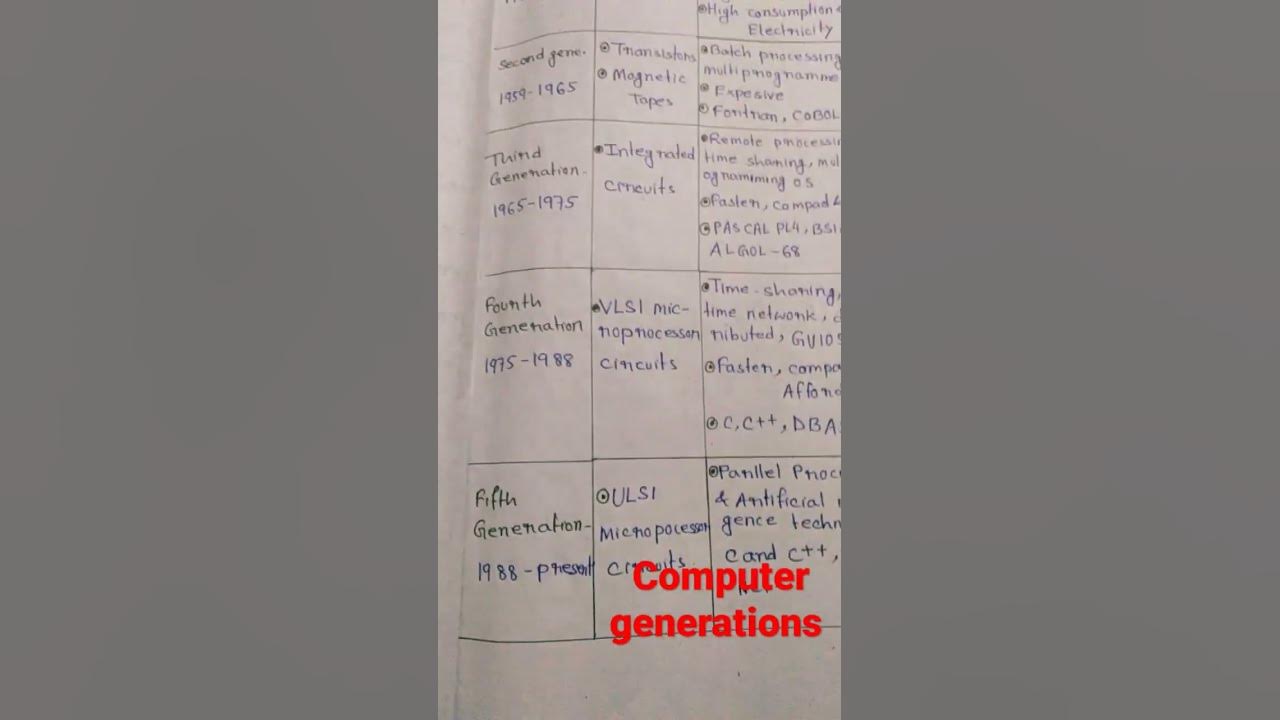 High consumption
Electricity
Second gene.
1959-1965
Transistors
Magnetic
Tapes
Batch processing
multiprogramme
Expesive
Fortran, COBOL
Third
Generation.
1965-1975
Integrated
circuits
Remote processin
time sharing, mul
ogramming os
Faster, compad
PASCAL PL4, BSI
ALGOL-68
Fourth
Generation
1975-1988
VLSI mic-
roprocesson
circuits
Time-sharing,
time network,
ributed, GUIOS
Faster, compa
Afford
C, C++, DBA
Fifth
Generation-
1988-present
ULSI
Micropocessor
circuits
Parllel Proc
& Antificial
gence techn
C and C++,
Computer
generations